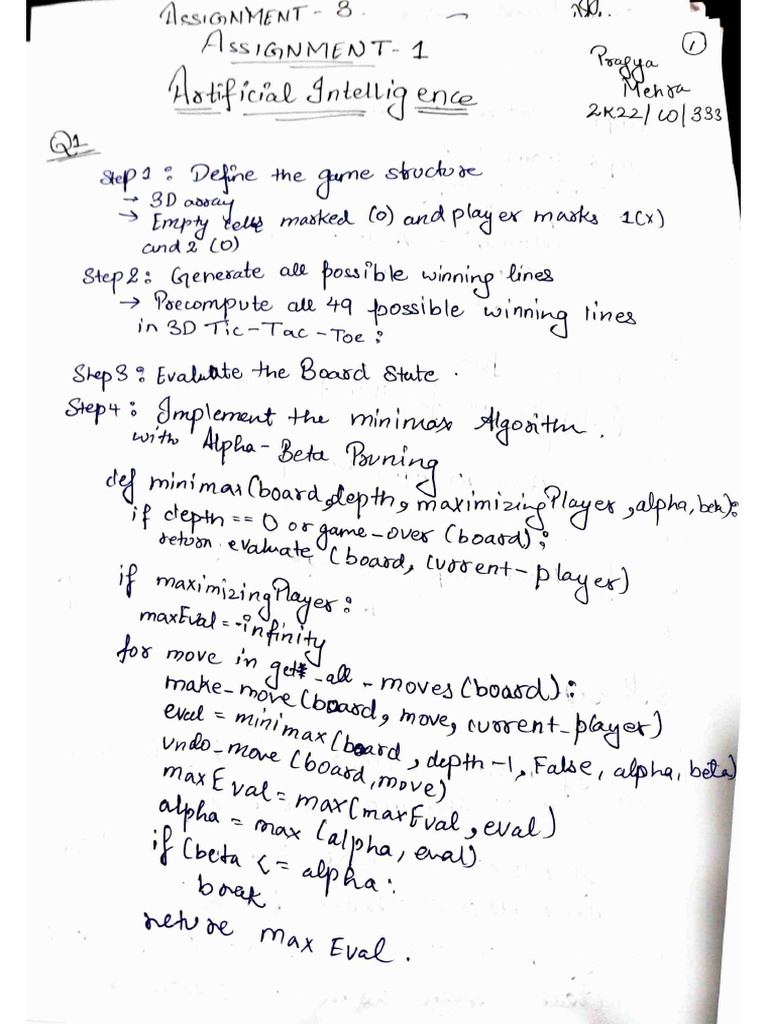 ASSIGNMENT - 3
ASSIGNMENT - 1
Artificial Intelligence
1
Pragya
Mehra
2K22/CO/333
Q1
Step 1: Define the game structure
→ 3D array
→ Empty cells marked (0) and player marks 1(x)
and 2 (0)
Step 2: Generate all possible winning lines
→ Precompute all 49 possible winning lines
in 3D Tic-Tac-Toe:
Step 3: Evaluate the Board State.
Step 4: Implement the minimax Algorithm.
with Alpha-Beta Pruning
def minimax(board, depth, maximizingPlayer, alpha, beta):
if depth == 0 or game_over (board);
return evaluate (board, current-player)
if maximizingPlayer:
maxEval = -infinity
for move in get_all_moves (board):
make_move (board, move, current_player)
eval = minimax (board, depth-1, False, alpha, beta)
undo_move (board, move)
maxEval = max(maxEval, eval)
alpha = max (alpha, eval)
if (beta <= alpha:
break
return max Eval.